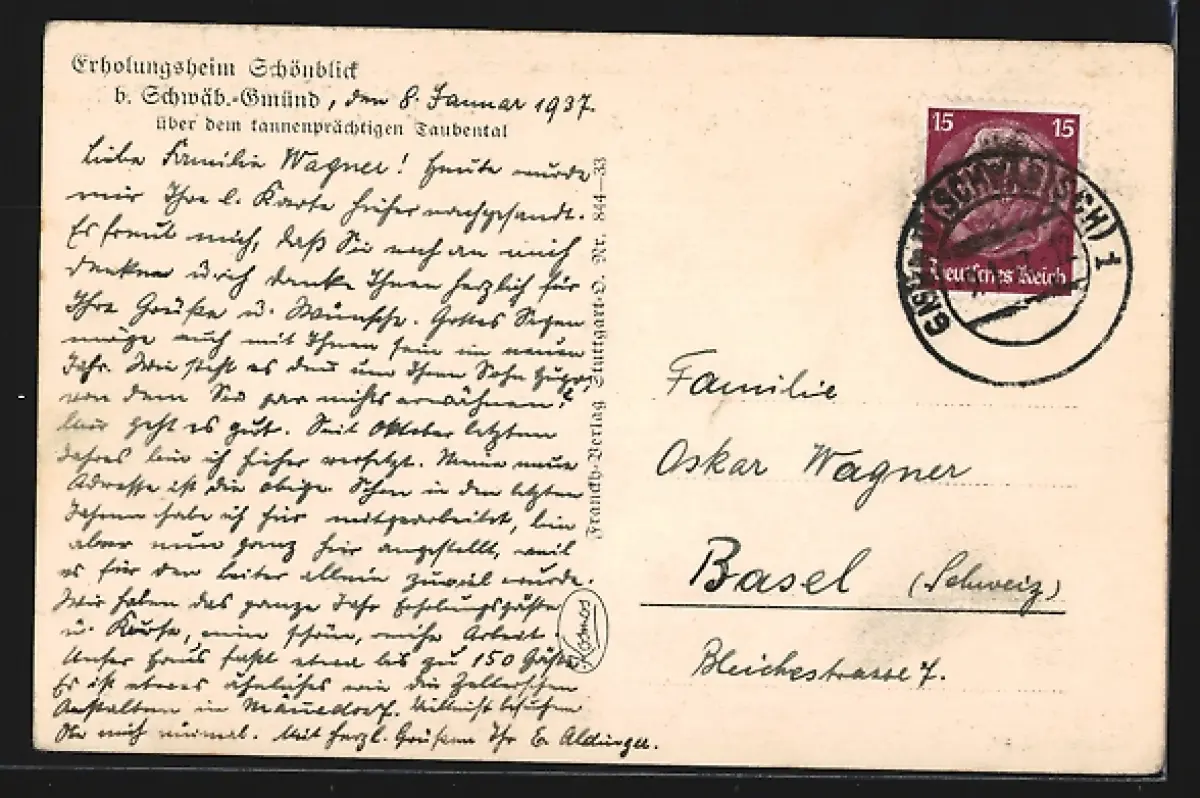 Erholungsheim Schönblick
b. Schwäb.-Gmünd, den 8. Januar 1937.
über dem tannenprächtigen Taubental
Liebe Familie Wagner! Heute wurde
mir Ihre l. Karte hieher nachgesandt.
Es freut mich, daß Sie noch an mich
denken u. ich danke Ihnen herzlich für
Ihre Grüße u. Wünsche. Gottes Segen
möge auch mit Ihnen sein im neuen
Jahr. Wie steht es denn um Ihren Sohn
von dem Sie gar nichts erwähnen?
Mir geht es gut. Seit Oktober letzten
Jahres bin ich hieher versetzt. Meine neue
Adresse ist die obige. Schon in den letzten
Jahren habe ich hier mitgearbeitet, bin
aber nun ganz hier angestellt, weil
es für den Leiter allein zuviel wurde.
Wir haben das ganze Jahr Erholungsgäste
u. Kurse, eine schöne, reiche Arbeit.
Unser Haus faßt etwa bis zu 150 Gäste.
Es ist etwas ähnliches wie die Zellerschen
Anstalten in Männedorf. Vielleicht besuchen
Sie mich einmal. Mit herzl. Grüßen Ihr E. Aldinger.
Franckh-Verlag Stuttgart-O. Nr. 844—33
Kosmos
15 15
Deutsches Reich
GMÜND (SCHWÄBISCH) 1
Familie
Oskar Wagner
Basel (Schweiz)
Bleichestrasse 7.